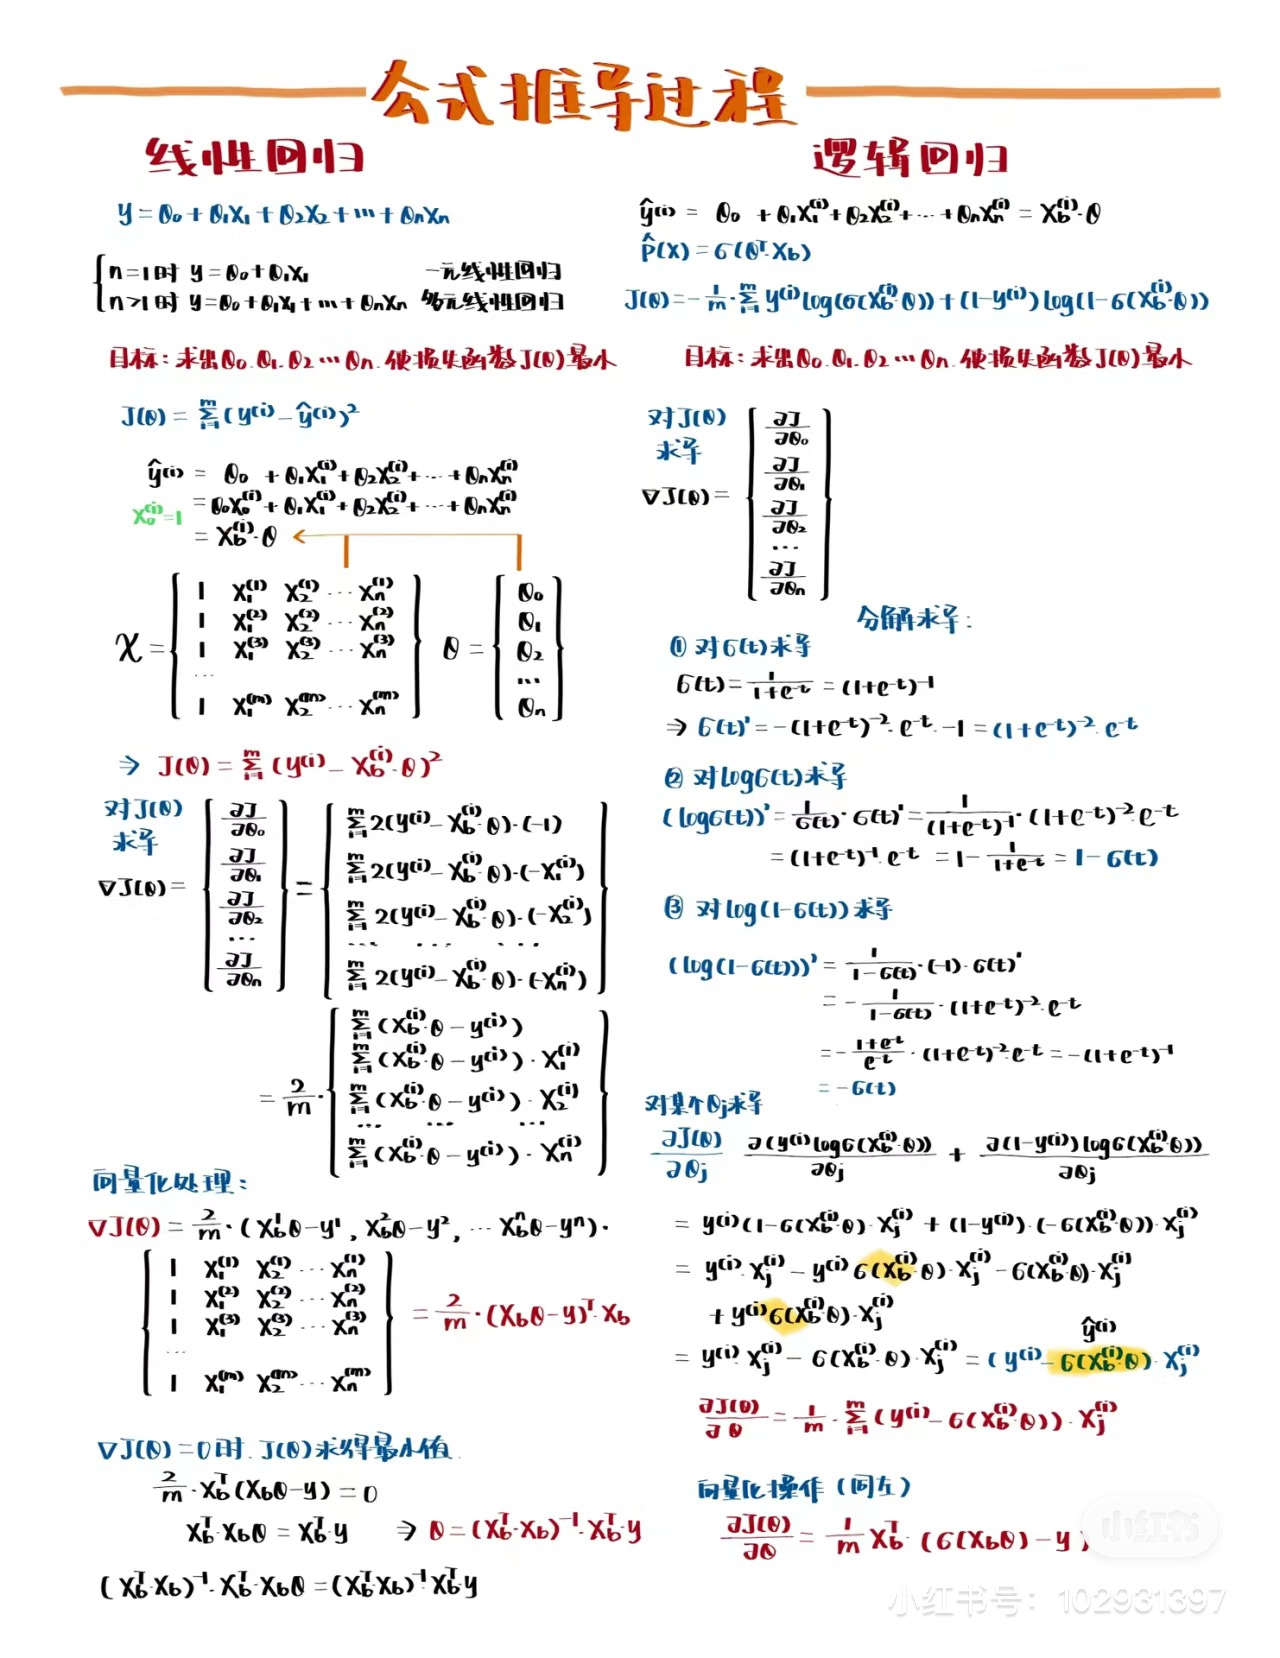 公式推导过程
线性回归
y = θ₀ + θ₁X₁ + θ₂X₂ + … + θₙXₙ
n=1时 y = θ₀ + θ₁X₁ 一元线性回归
n>1时 y = θ₀ + θ₁X₁ + … + θₙXₙ 多元线性回归
目标：求出θ₀.θ₁.θ₂…θₙ.使损失函数J(θ)最小
J(θ) = Σᵢ₌₁ᵐ (y⁽ⁱ⁾ − ŷ⁽ⁱ⁾)²
ŷ⁽ⁱ⁾ = θ₀ + θ₁X₁⁽ⁱ⁾ + θ₂X₂⁽ⁱ⁾ + … + θₙXₙ⁽ⁱ⁾
X₀⁽ⁱ⁾=1
= θ₀X₀⁽ⁱ⁾ + θ₁X₁⁽ⁱ⁾ + θ₂X₂⁽ⁱ⁾ + … + θₙXₙ⁽ⁱ⁾
= X_b⁽ⁱ⁾·θ
X =
1 X₁⁽¹⁾ X₂⁽¹⁾ … Xₙ⁽¹⁾
1 X₁⁽²⁾ X₂⁽²⁾ … Xₙ⁽²⁾
1 X₁⁽³⁾ X₂⁽³⁾ … Xₙ⁽³⁾
…
1 X₁⁽ᵐ⁾ X₂⁽ᵐ⁾ … Xₙ⁽ᵐ⁾
θ =
θ₀
θ₁
θ₂
…
θₙ
⇒ J(θ) = Σᵢ₌₁ᵐ (y⁽ⁱ⁾ − X_b⁽ⁱ⁾·θ)²
对J(θ)
求导
∇J(θ) =
∂J/∂θ₀
∂J/∂θ₁
∂J/∂θ₂
…
∂J/∂θₙ
=
Σᵢ₌₁ᵐ 2(y⁽ⁱ⁾ − X_b⁽ⁱ⁾·θ)·(−1)
Σᵢ₌₁ᵐ 2(y⁽ⁱ⁾ − X_b⁽ⁱ⁾·θ)·(−X₁⁽ⁱ⁾)
Σᵢ₌₁ᵐ 2(y⁽ⁱ⁾ − X_b⁽ⁱ⁾·θ)·(−X₂⁽ⁱ⁾)
… … …
Σᵢ₌₁ᵐ 2(y⁽ⁱ⁾ − X_b⁽ⁱ⁾·θ)·(−Xₙ⁽ⁱ⁾)
= 2/m ·
Σᵢ₌₁ᵐ (X_b⁽ⁱ⁾·θ − y⁽ⁱ⁾)
Σᵢ₌₁ᵐ (X_b⁽ⁱ⁾·θ − y⁽ⁱ⁾)·X₁⁽ⁱ⁾
Σᵢ₌₁ᵐ (X_b⁽ⁱ⁾·θ − y⁽ⁱ⁾)·X₂⁽ⁱ⁾
… … …
Σᵢ₌₁ᵐ (X_b⁽ⁱ⁾·θ − y⁽ⁱ⁾)·Xₙ⁽ⁱ⁾
向量化处理：
∇J(θ) = 2/m·(X_b¹θ−y¹, X_b²θ−y², … X_bⁿθ−yⁿ)·
1 X₁⁽¹⁾ X₂⁽¹⁾ … Xₙ⁽¹⁾
1 X₁⁽²⁾ X₂⁽²⁾ … Xₙ⁽²⁾
1 X₁⁽³⁾ X₂⁽³⁾ … Xₙ⁽³⁾
…
1 X₁⁽ᵐ⁾ X₂⁽ᵐ⁾ … Xₙ⁽ᵐ⁾
= 2/m·(X_bθ−y)ᵀ·X_b
∇J(θ)=0时.J(θ)求得最小值.
2/m·X_bᵀ(X_bθ−y) = 0
X_bᵀ·X_bθ = X_bᵀ·y ⇒ θ = (X_bᵀ·X_b)⁻¹·X_bᵀ·y
(X_bᵀ·X_b)⁻¹·X_bᵀ·X_bθ = (X_bᵀX_b)⁻¹X_bᵀy
逻辑回归
ŷ⁽ⁱ⁾ = θ₀ + θ₁X₁⁽ⁱ⁾ + θ₂X₂⁽ⁱ⁾ + … + θₙXₙ⁽ⁱ⁾ = X_b⁽ⁱ⁾·θ
p̂(X) = σ(θᵀ·X_b)
J(θ) = −1/m·Σᵢ₌₁ᵐ y⁽ⁱ⁾log(σ(X_b⁽ⁱ⁾·θ)) + (1−y⁽ⁱ⁾)log(1−σ(X_b⁽ⁱ⁾·θ))
目标：求出θ₀.θ₁.θ₂…θₙ.使损失函数J(θ)最小
对J(θ)
求导
∇J(θ) =
∂J/∂θ₀
∂J/∂θ₁
∂J/∂θ₂
…
∂J/∂θₙ
分解求导：
① 对σ(t)求导
σ(t) = 1/(1+e⁻ᵗ) = (1+e⁻ᵗ)⁻¹
⇒ σ(t)' = −(1+e⁻ᵗ)⁻²·e⁻ᵗ·−1 = (1+e⁻ᵗ)⁻²·e⁻ᵗ
② 对logσ(t)求导
(logσ(t))' = 1/σ(t)·σ(t)' = 1/(1+e⁻ᵗ)⁻¹·(1+e⁻ᵗ)⁻²·e⁻ᵗ
= (1+e⁻ᵗ)⁻¹·e⁻ᵗ = 1 − 1/(1+e⁻ᵗ) = 1−σ(t)
③ 对log(1−σ(t))求导
(log(1−σ(t)))' = 1/(1−σ(t))·(−1)·σ(t)'
= −1/(1−σ(t))·(1+e⁻ᵗ)⁻²·e⁻ᵗ
= −(1+e⁻ᵗ)/e⁻ᵗ·(1+e⁻ᵗ)⁻²e⁻ᵗ = −(1+e⁻ᵗ)⁻¹
= −σ(t)
对某个θⱼ求导
∂J(θ)/∂θⱼ ∂(y⁽ⁱ⁾logσ(X_b⁽ⁱ⁾·θ))/∂θⱼ + ∂(1−y⁽ⁱ⁾)logσ(X_b⁽ⁱ⁾·θ))/∂θⱼ
= y⁽ⁱ⁾(1−σ(X_b⁽ⁱ⁾·θ)·Xⱼ⁽ⁱ⁾ + (1−y⁽ⁱ⁾)·(−σ(X_b⁽ⁱ⁾·θ))·Xⱼ⁽ⁱ⁾
= y⁽ⁱ⁾·Xⱼ⁽ⁱ⁾ − y⁽ⁱ⁾σ(X_b⁽ⁱ⁾·θ)·Xⱼ⁽ⁱ⁾ − σ(X_b⁽ⁱ⁾θ)·Xⱼ⁽ⁱ⁾
+ y⁽ⁱ⁾σ(X_b⁽ⁱ⁾·θ)·Xⱼ⁽ⁱ⁾
ŷ⁽ⁱ⁾
= y⁽ⁱ⁾·Xⱼ⁽ⁱ⁾ − σ(X_b⁽ⁱ⁾·θ)·Xⱼ⁽ⁱ⁾ = (y⁽ⁱ⁾−σ(X_b⁽ⁱ⁾·θ)·Xⱼ⁽ⁱ⁾
∂J(θ)/∂θ = 1/m·Σᵢ₌₁ᵐ (y⁽ⁱ⁾−σ(X_b⁽ⁱ⁾·θ))·Xⱼ⁽ⁱ⁾
向量化操作（同左）
∂J(θ)/∂θ = 1/m X_bᵀ·(σ(X_bθ)−y)
小红书
小红书号：102931397